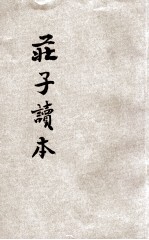 莊子讀本